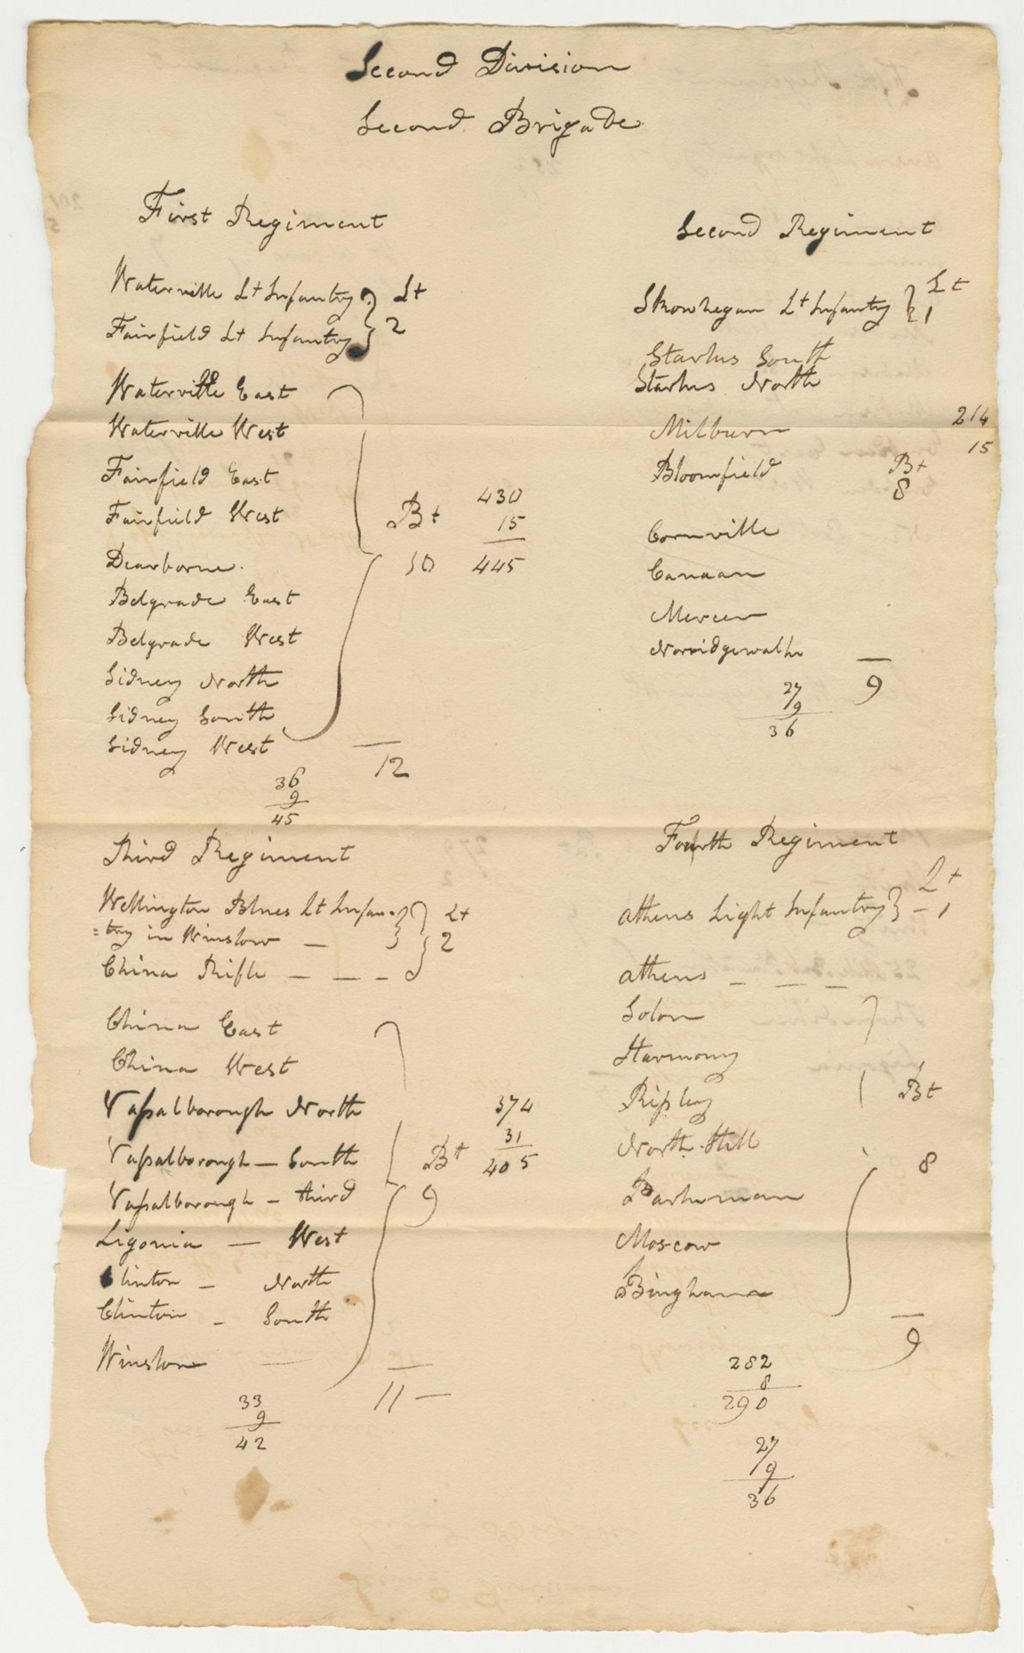 Second Division
Second Brigade
First Regiment
Waterville Lt Infantry } Lt
Fairfield Lt Infantry } 2
Waterville East
Waterville West
Fairfield East
Fairfield West
Dearborne.
Belgrade East
Belgrade West
Sidney North
Sidney South
Sidney West
Bt
10
430
15
445
12
36
9
45
Second Regiment
Skowhegan Lt Infantry } Lt
1
Starks South
Starks North
Milburn
Bloomfield
Cornville
Canaan
Mercer
Norridgewalk
Bt
8
214
15
9
27
9
36
Third Regiment
Wellington Blues Lt Infan- } Lt
=try in Winslow — } 2
China Rifle — — -
China East
China West
Vassalborough North
Vassalborough — South
Vassalborough - third
Ligonia — West
Clinton - North
Clinton - South
Winslow —
Bt
9
374
31
405
11 —
33
9
42
Fourth Regiment
Athens Light Infantry } Lt
- 1
Athens - — —
Solon
Harmony
Ripley
North Hill
Parkman
Moscow
Bingham
Bt
8
9
282
8
290
27
9
36